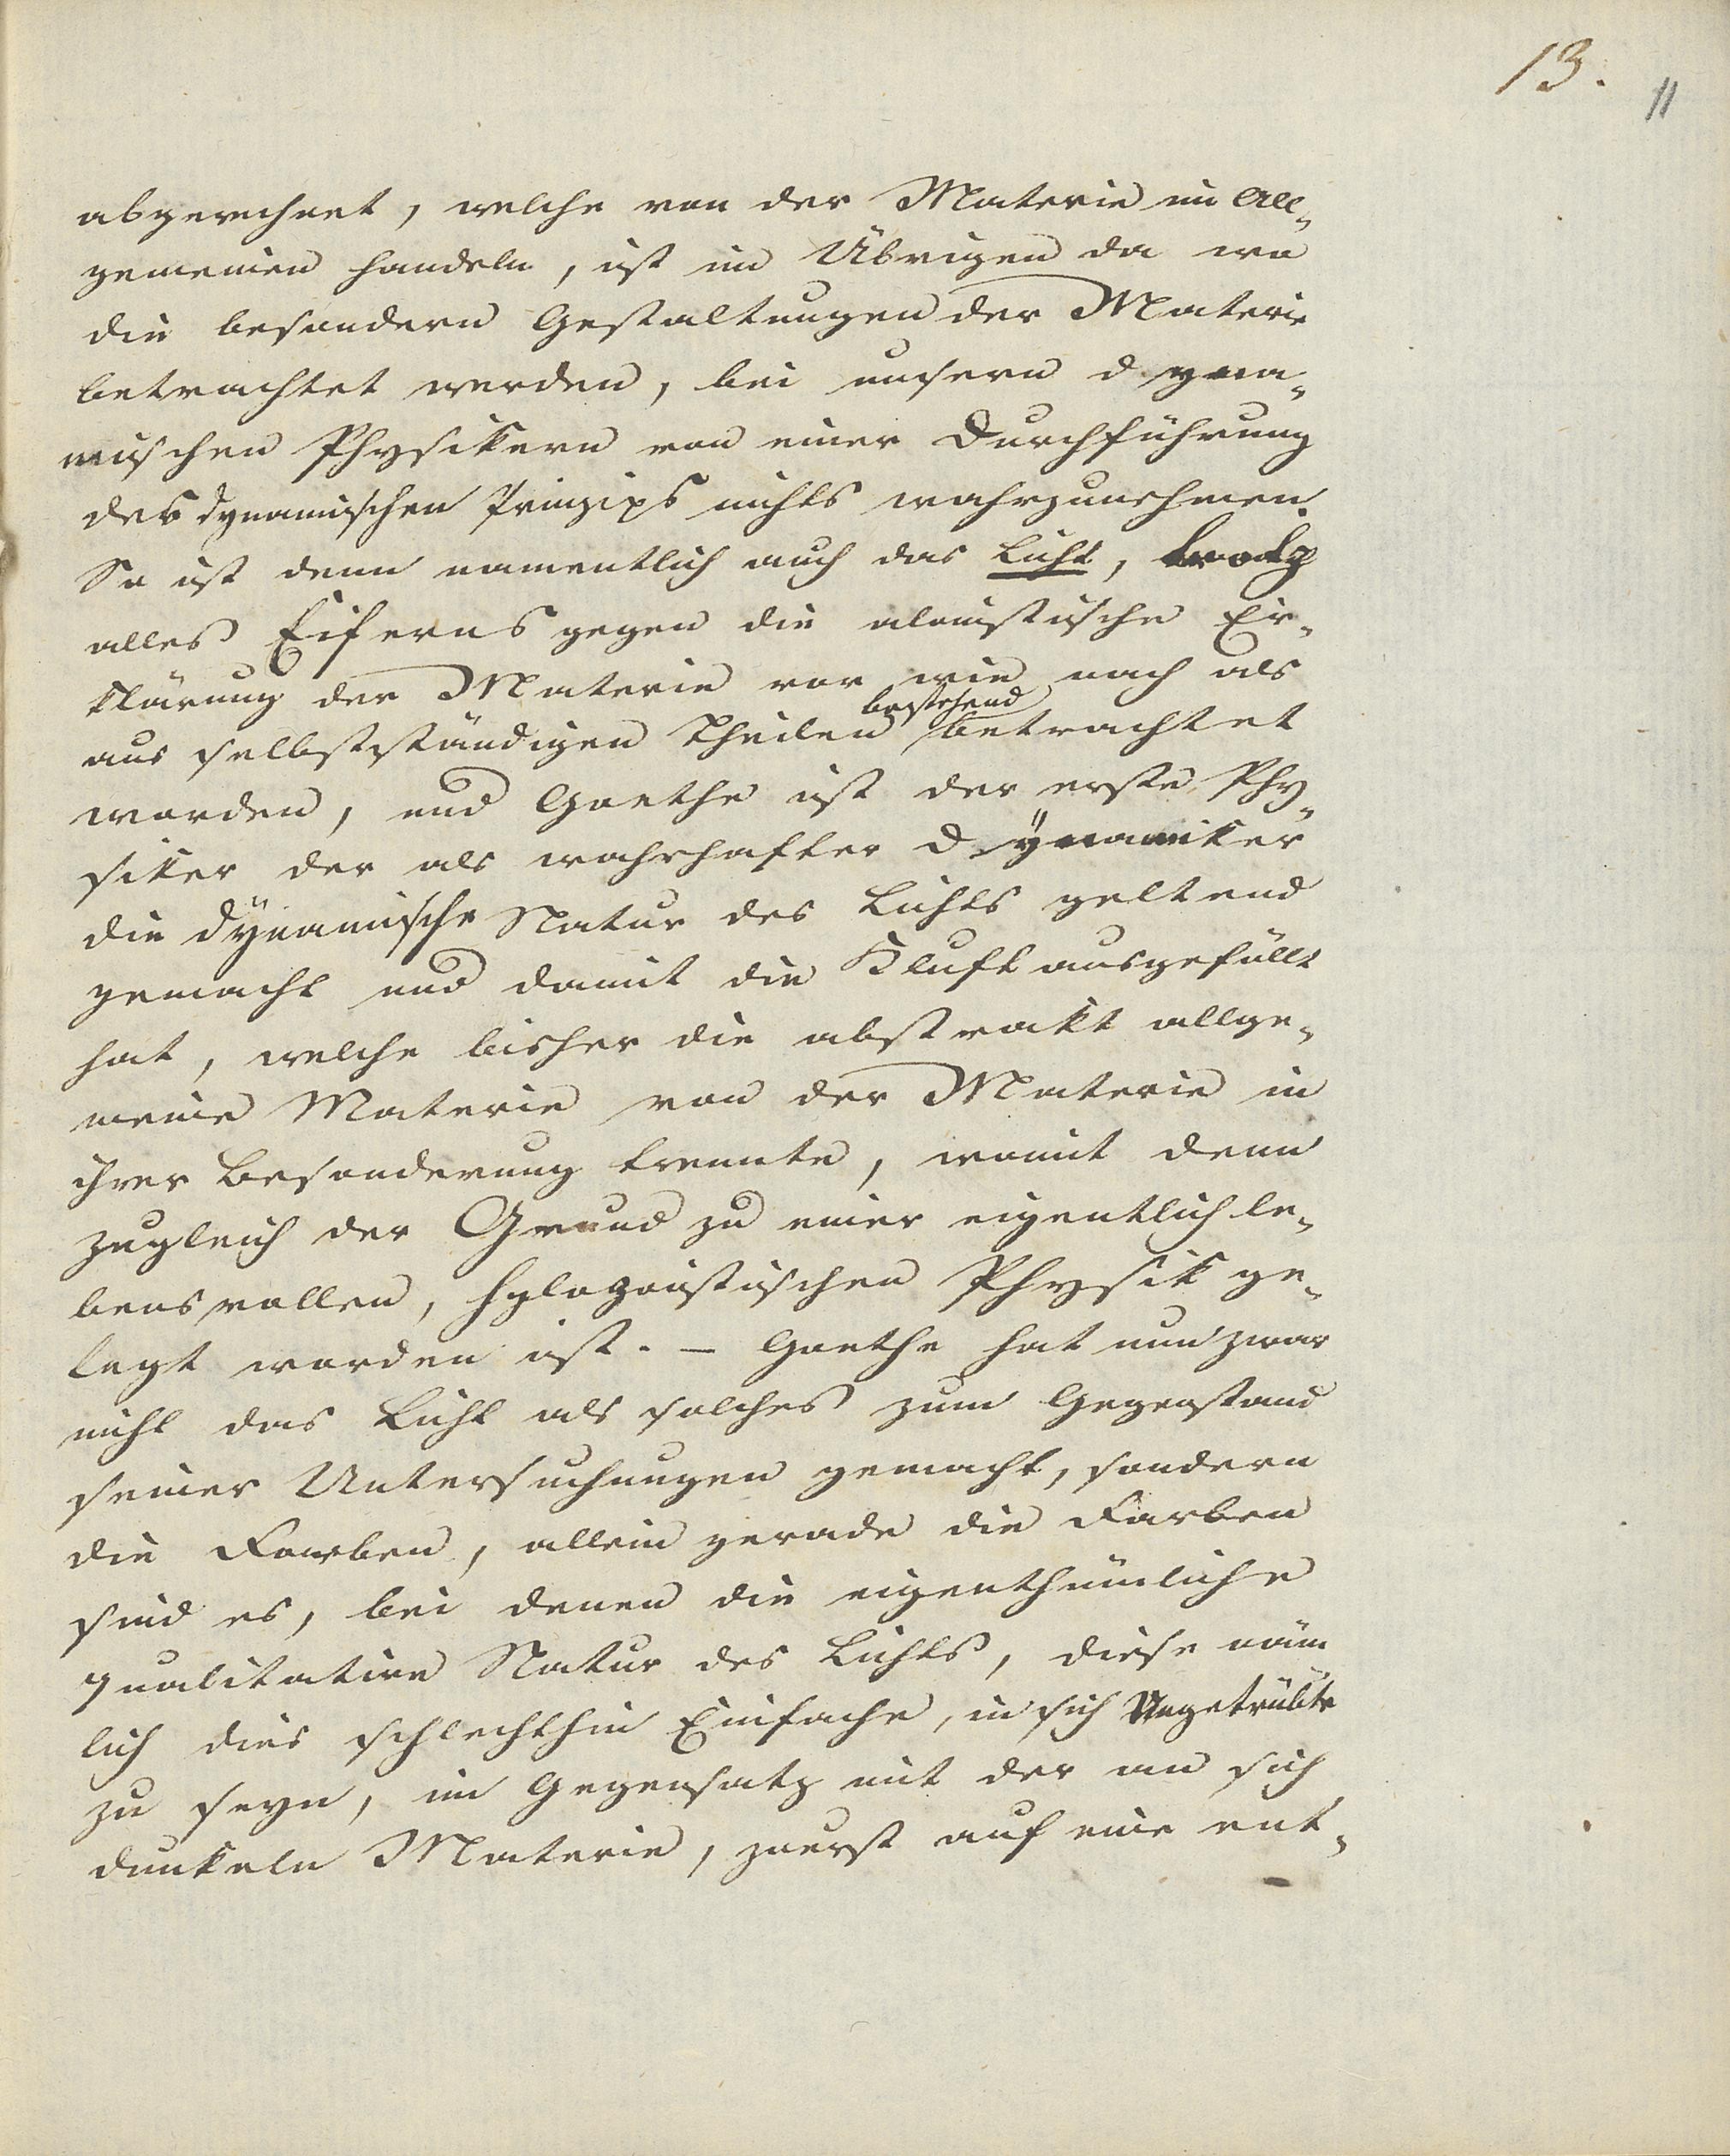 13.
11
abgerechnet, welche von der Materie im All-
gemeinen handeln, ist im Übrigen da wo
die besondern Gestaltungen der Materie
betrachtet werden, bei unsern dyna-
mischen Physikern von einer Durchführung
des dynamischen Prinzips nichts wahrzunehmen.
So ist denn namentlich auch das Licht, trotz
alles Eiferns gegen die atomistische Er-
klärung der Materie vor wie nach als
bestehend
aus selbstständigen Theilen betrachtet
worden, und Goethe ist der erste Phy-
siker der als wahrhafter Dynamiker
die dynamische Natur des Lichts geltend
gemacht und damit die Kluft ausgefüllt
hat, welche bisher die abstrakt allge-
meine Materie von der Materie in
ihrer Besonderung trennte, womit denn
zugleich der Grund zu einer eigentlich le-
bensvollen, hylozoistischen Physik ge-
legt worden ist. – Goethe hat nun zwar
nicht das Licht als solches zum Gegenstand
seiner Untersuchungen gemacht, sondern
die Farben, allein gerade die Farben
sind es, bei denen die eigenthümliche
qualitative Natur des Lichts, diese näm
lich dies schlechthin Einfache, in sich Ungetrübte
zu seyn, im Gegensatz mit der an sich
dunkeln Materie, zuerst auf eine ent-